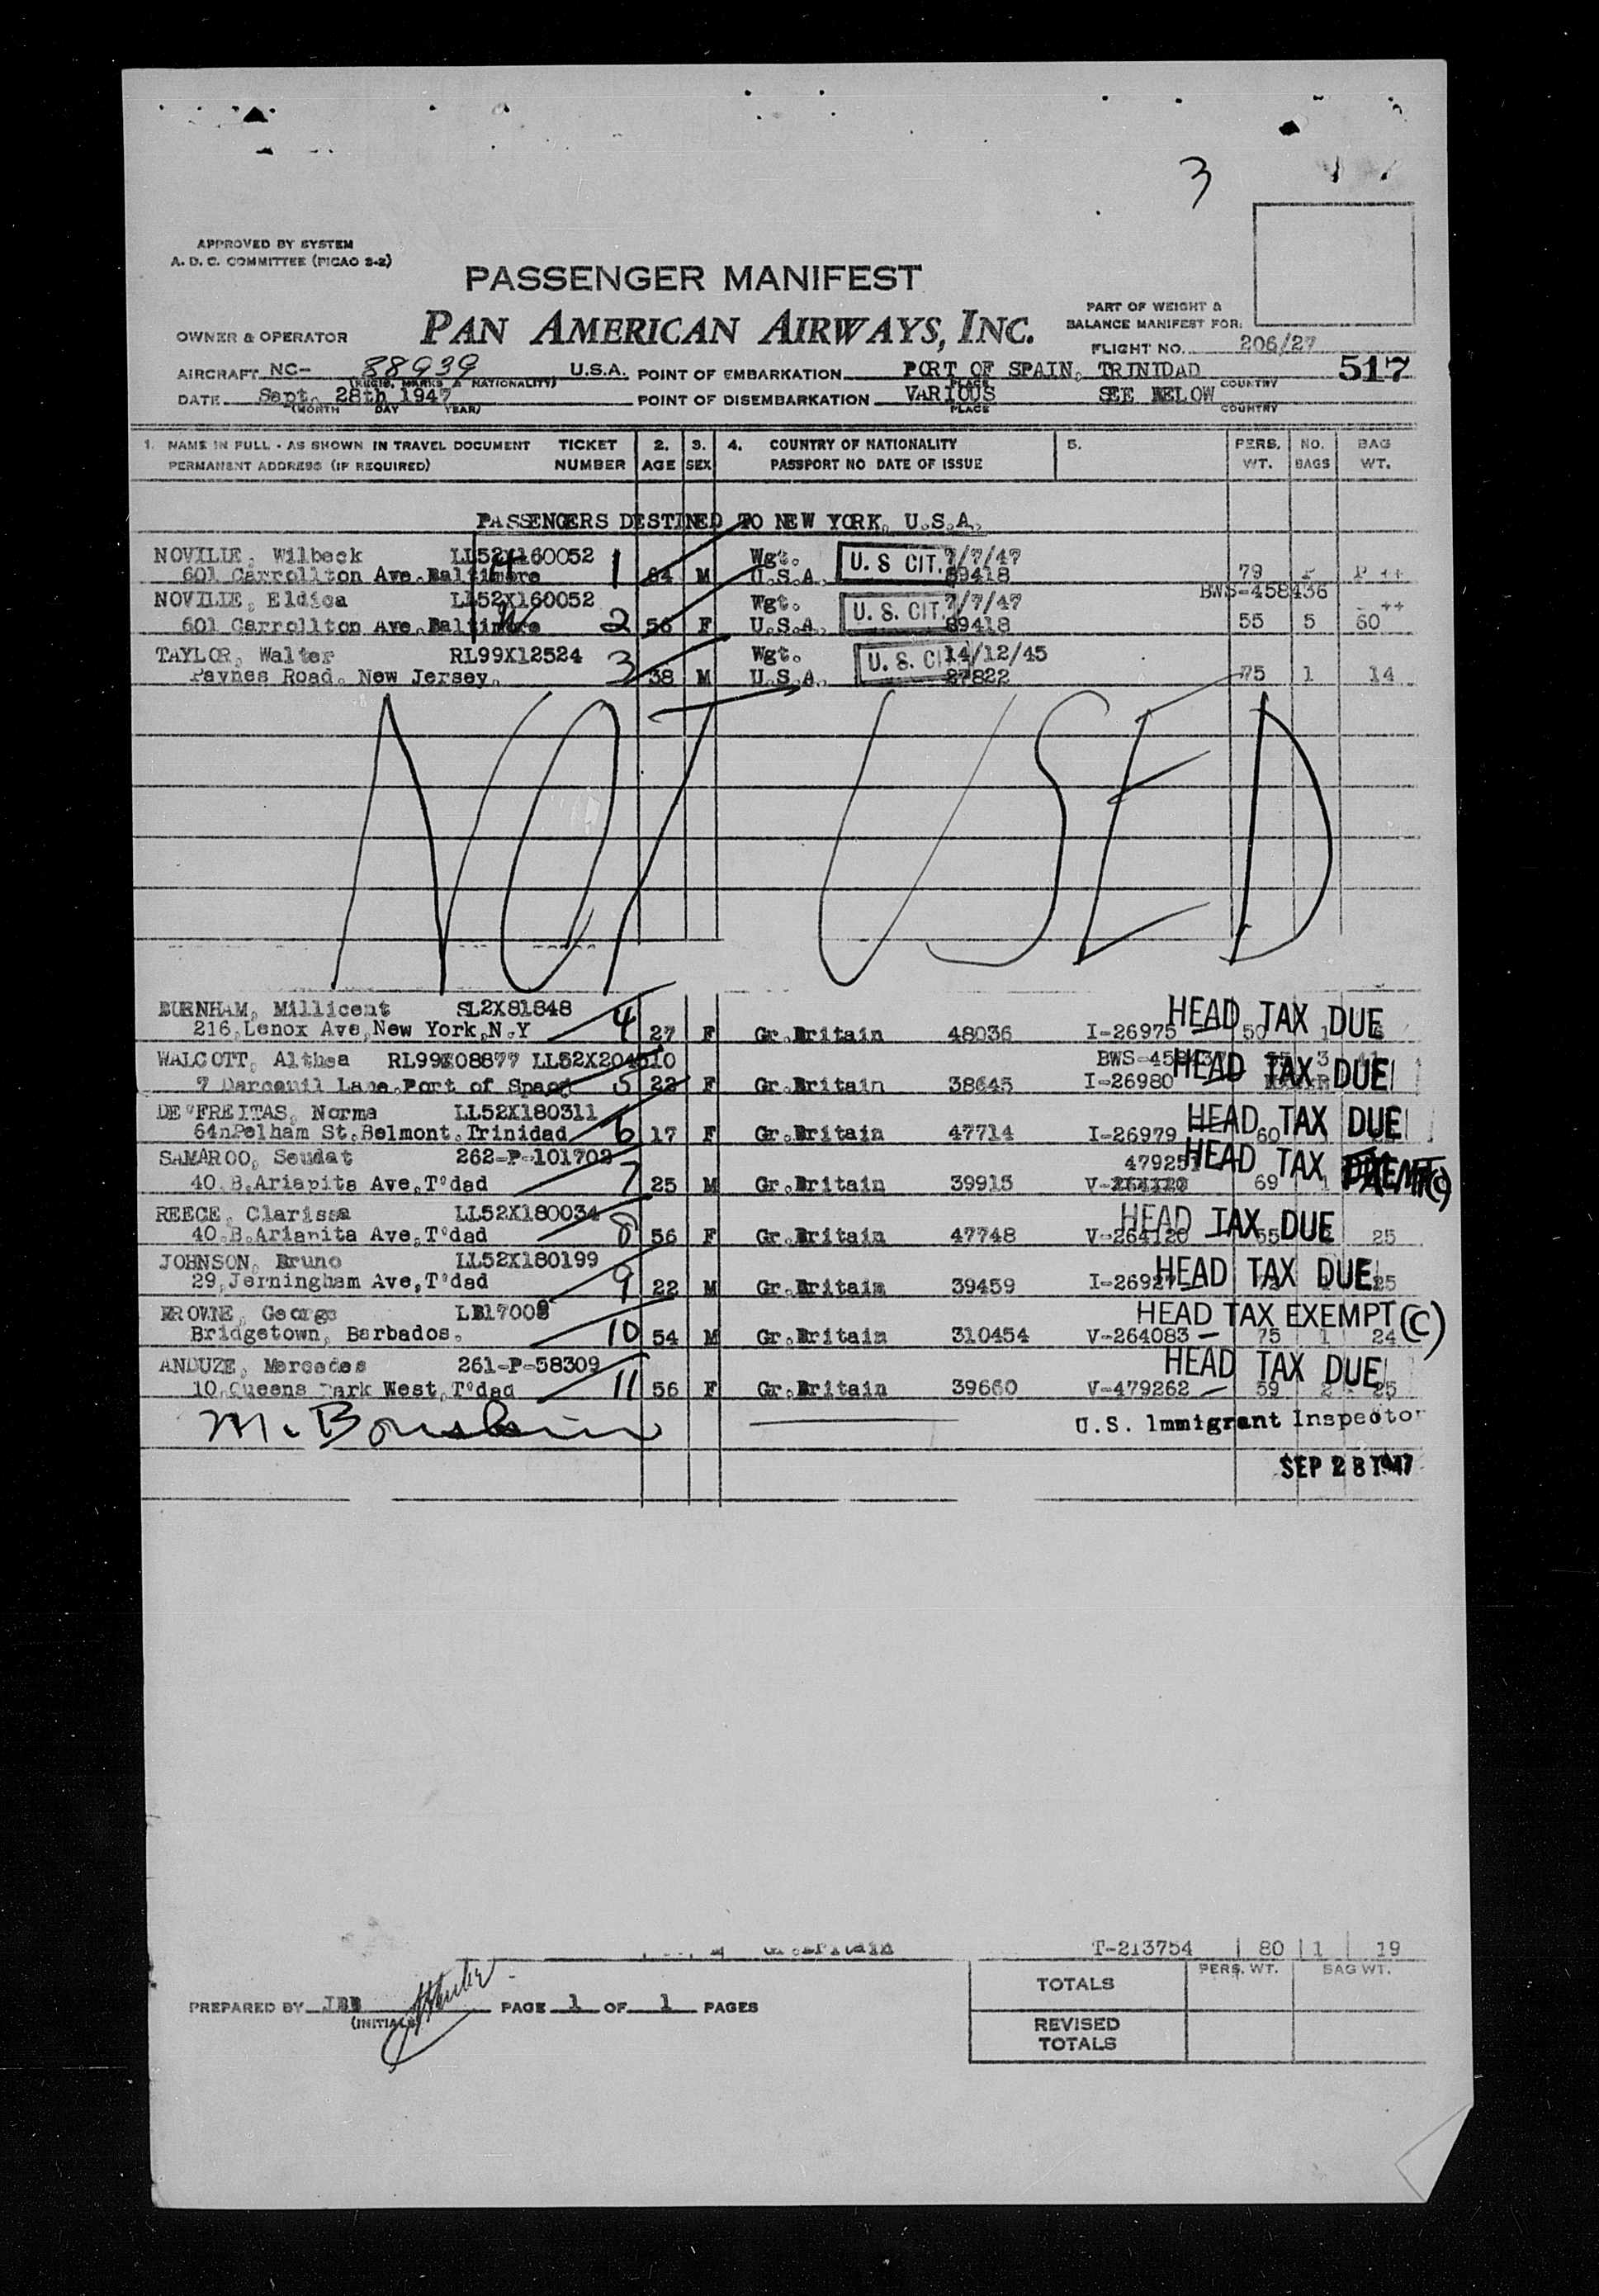 3
APPROVED BY SYSTEM
A. D. C. COMMITTEE (PICAO 2-2)
PASSENGER MANIFEST
PAN AMERICAN AIRWAYS, INC.
OWNER & OPERATOR
PART OF WEIGHT &
BALANCE MANIFEST FOR:
FLIGHT NO. 206/27
AIRCRAFT NC- 88939 U.S.A. POINT OF EMBARKATION PORT OF SPAIN, TRINIDAD 517
(REGIS. MARKS & NATIONALITY) PLACE COUNTRY
DATE Sept. 28th 1947 POINT OF DISEMBARKATION VARIOUS SEE BELOW
(MONTH DAY YEAR) PLACE COUNTRY
1. NAME IN FULL - AS SHOWN IN TRAVEL DOCUMENT TICKET 2. 3. 4. COUNTRY OF NATIONALITY 5. PERS. NO. BAG
PERMANENT ADDRESS (IF REQUIRED) NUMBER AGE SEX PASSPORT NO DATE OF ISSUE WT. BAGS WT.
PASSENGERS DESTINED TO NEW YORK, U.S.A.
NOVILLE, Wilbeck LL52X160052 Wgt. U. S CIT. 7/7/47
601 Carrollton Ave. Baltimore 1 64 M U.S.A. 89418 79
BWS-458436
NOVILLE, Eldica LL52X160052 Wgt. U. S. CIT. 7/7/47 ++
601 Carrollton Ave. Baltimore 2 56 F U.S.A. 89418 55 5 60
TAYLOR, Walter RL99X12524 Wgt. U. S. CI 14/12/45
Paynes Road, New Jersey. 3 38 M U.S.A. 27822 75 1 14
NOT USED
BURNHAM, Millicent SL2X81848 HEAD TAX DUE
216, Lenox Ave, New York, N.Y 4 27 F Gr.Britain 48036 I-26975 50 1
WALCOTT, Althea RL99X08877 LL52X204510 3
7 Lane, Port of 5 22 F Gr.Britain 38645 I-26980 HEAD TAX DUE
DE FREITAS, Norma LL52X180311 HEAD TAX DUE
64 Pelham St. Belmont. Trinidad 6 17 F Gr.Britain 47714 I-26979 60
SAMAROO, Seudat 262-P-101702 HEAD TAX
40.B. Ariapita Ave, T'dad 7 25 M Gr.Britain 39915 69 1
REECE, Clarissa LL52X180034 HEAD TAX DUE
40.B. Ariapita Ave, T'dad 8 56 F Gr.Britain 47748 V-264120 55 25
JOHNSON, Bruno LL52X180199
29, Jerningham Ave, T'dad 9 22 M Gr.Britain 39459 HEAD TAX DUE 25
BROWNE, George HEAD TAX EXEMPT (C)
Bridgetown, Barbados. 10 54 M Gr.Britain 310454 V-264083 75 1 24
ANDUZE, Mercedes 261-P-58309 HEAD TAX DUE
10, Queens Park West, T'dad 11 56 F Gr.Britain 39660 V-479262 59 2 25
U.S. Immigrant Inspector
SEP 28 1947
Gr.Britain T-213754 80 1 19
TOTALS PERS. WT. BAG WT.
PREPARED BY PAGE 1 OF 1 PAGES
(INITIALS)
REVISED
TOTALS